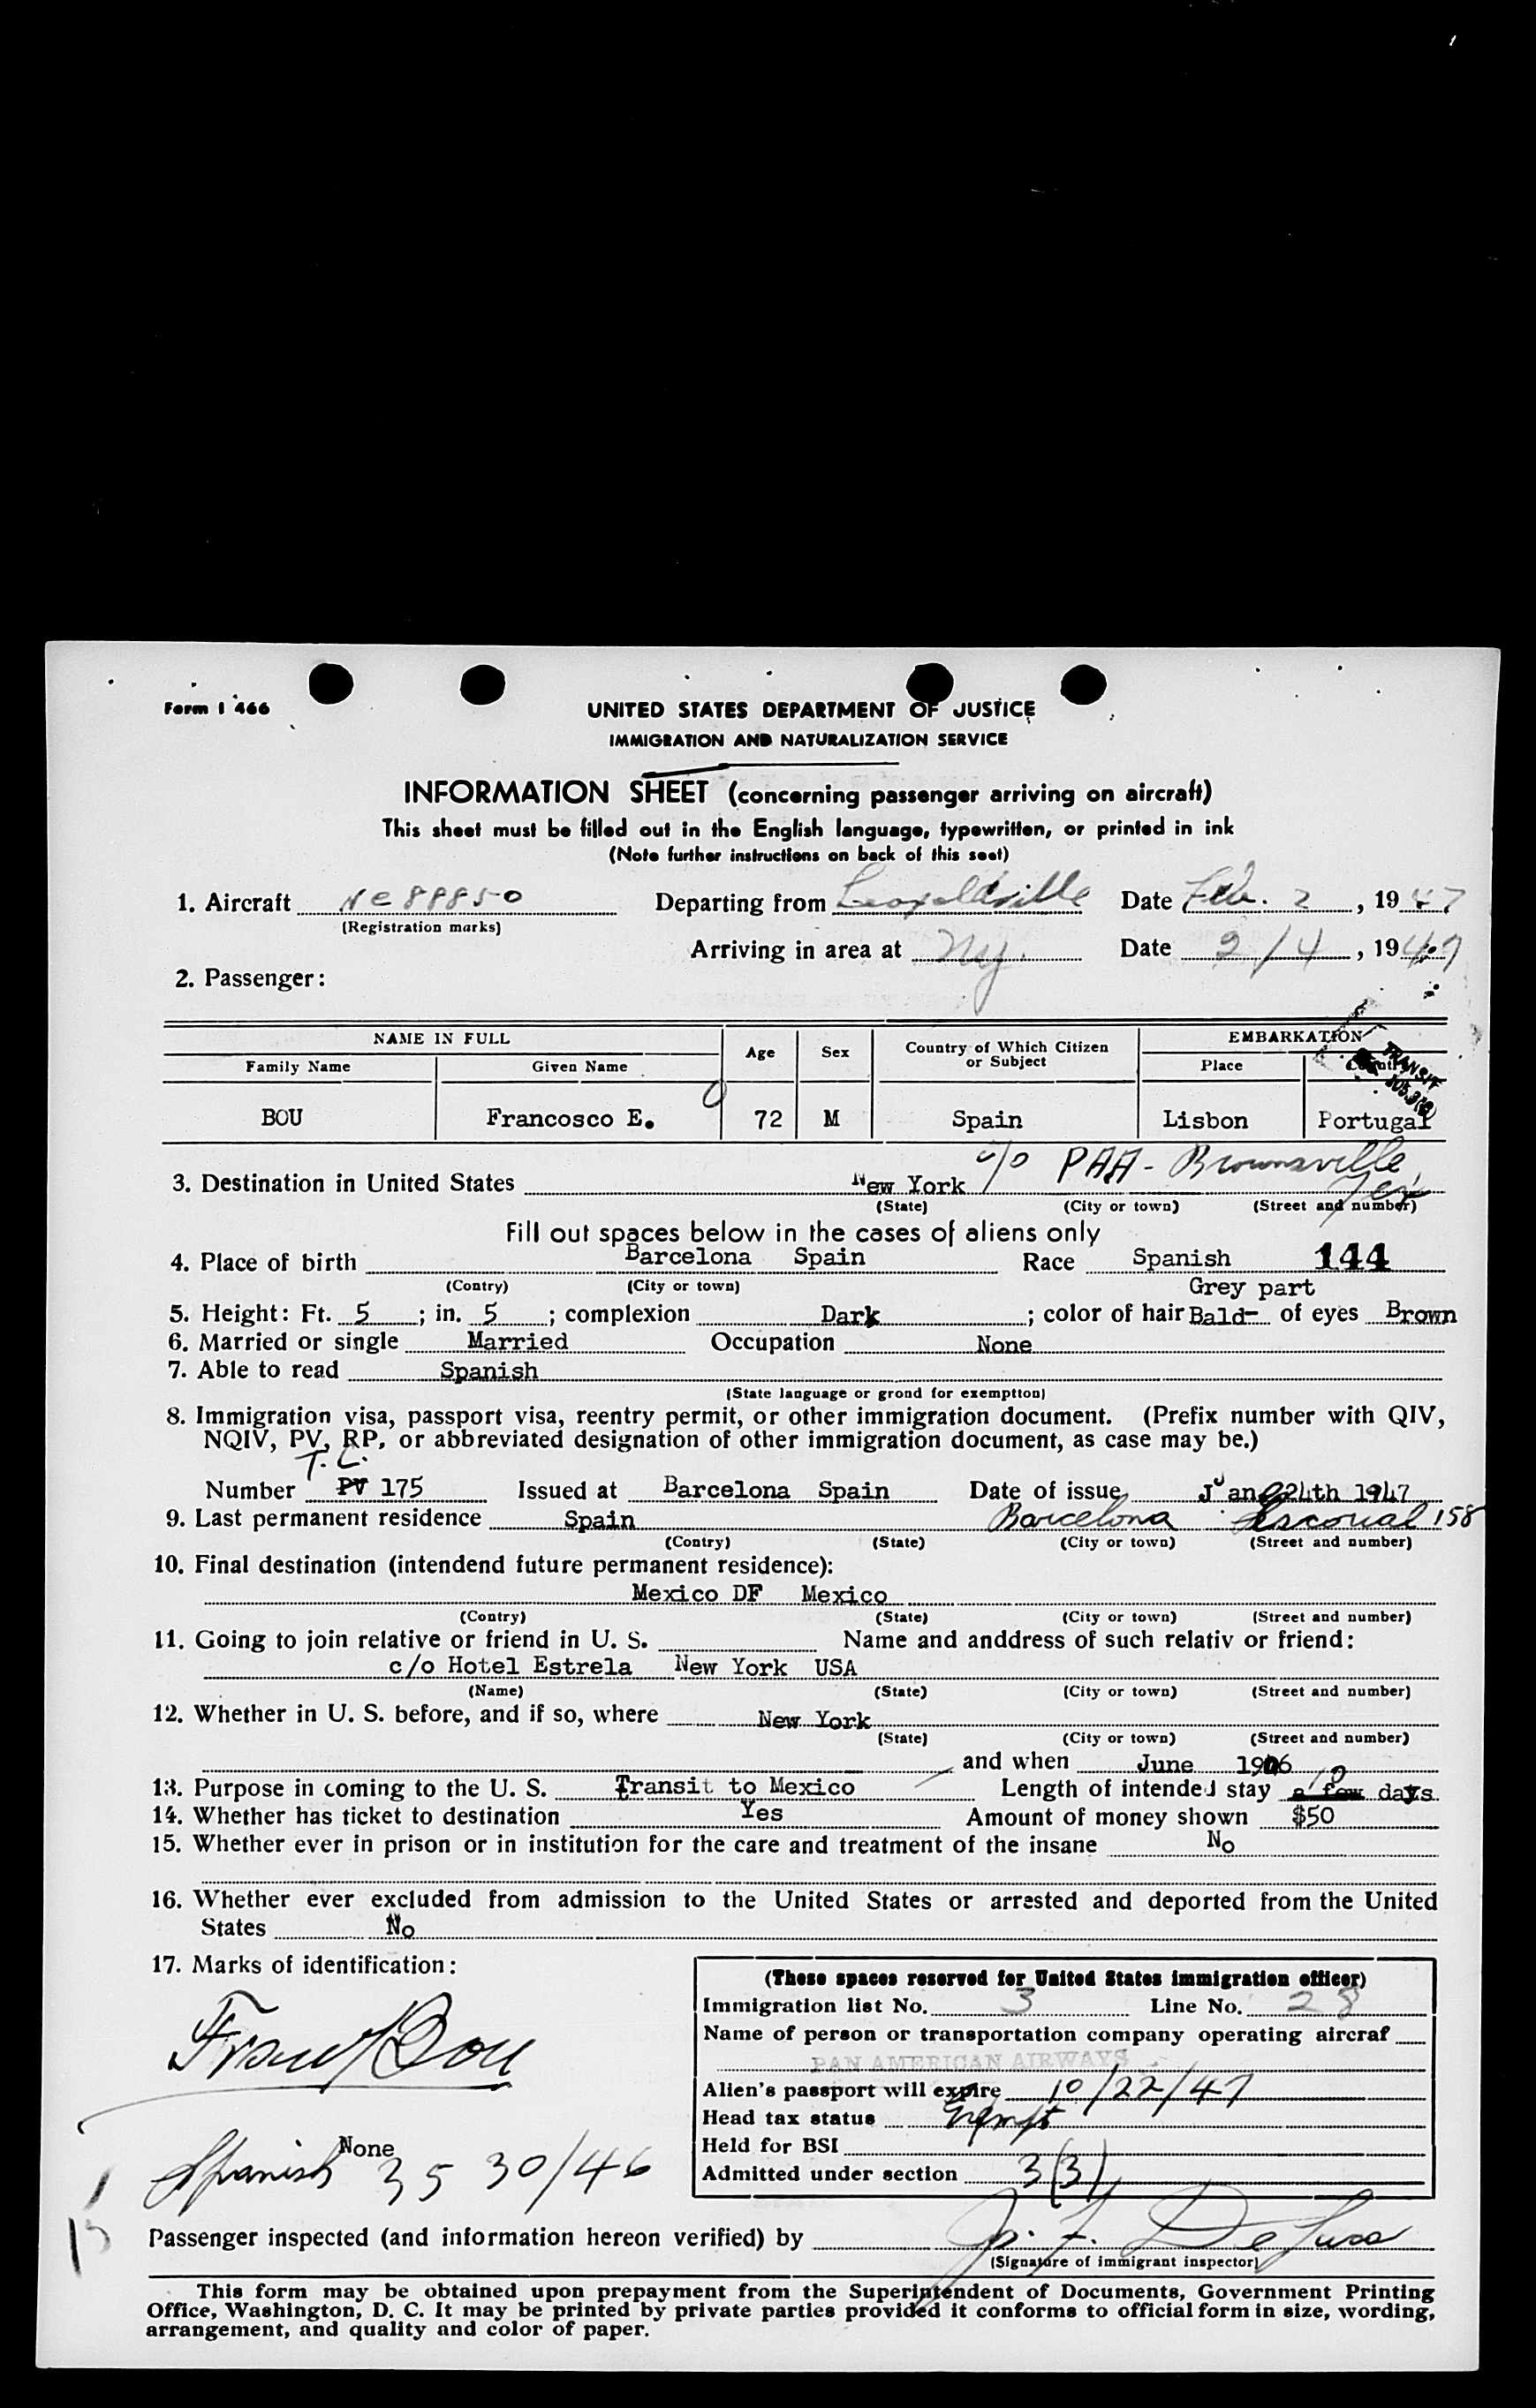 Form I 466
UNITED STATES DEPARTMENT OF JUSTICE
IMMIGRATION AND NATURALIZATION SERVICE
INFORMATION SHEET (concerning passenger arriving on aircraft)
This sheet must be filled out in the English language, typewritten, or printed in ink
(Note further instructions on back of this seet)
1. Aircraft NC 88850 Departing from Leopoldville Date Feb. 2, 1947
(Registration marks)
Arriving in area at NY. Date 2/4, 1947
2. Passenger:
NAME IN FULL Age Sex Country of Which Citizen or Subject EMBARKATION
Family Name Given Name Place
TRANSIT
BOU Francosco E. 72 M Spain Lisbon Portugal
c/o PAA - Brownsville, Tex
3. Destination in United States New York
(State) (City or town) (Street and number)
Fill out spaces below in the cases of aliens only
4. Place of birth Barcelona Spain Race Spanish 144
(Contry) (City or town) Grey part
5. Height: Ft. 5; in. 5; complexion Dark; color of hair Bald- of eyes Brown
6. Married or single Married Occupation None
7. Able to read Spanish
(State language or grond for exemption)
8. Immigration visa, passport visa, reentry permit, or other immigration document. (Prefix number with QIV,
NQIV, PV, RP, or abbreviated designation of other immigration document, as case may be.)
T. C.
Number PV 175 Issued at Barcelona Spain Date of issue Jan 24th 1947
9. Last permanent residence Spain Barcelona Escorial 158
(Contry) (State) (City or town) (Street and number)
10. Final destination (intendend future permanent residence):
Mexico DF Mexico
(Contry) (State) (City or town) (Street and number)
11. Going to join relative or friend in U. S. Name and anddress of such relativ or friend:
c/o Hotel Estrela New York USA
(Name) (State) (City or town) (Street and number)
12. Whether in U. S. before, and if so, where New York
(State) (City or town) (Street and number)
and when June
13. Purpose in coming to the U. S. Transit to Mexico Length of intended stay 10 a few days
14. Whether has ticket to destination Yes Amount of money shown $50
15. Whether ever in prison or in institution for the care and treatment of the insane No
16. Whether ever excluded from admission to the United States or arrested and deported from the United
States No
17. Marks of identification:
(These spaces reserved for United States immigration officer)
Immigration list No. 3 Line No. 28
Name of person or transportation company operating aircraf
PAN AMERICAN AIRWAYS
Alien's passport will expire 10/22/47
Head tax status Exempt
Held for BSI
Admitted under section 3(3)
Bou
None
Spanish 35 30/46
15
Passenger inspected (and information hereon verified) by J. F. De Luca
(Signature of immigrant inspector)
This form may be obtained upon prepayment from the Superintendent of Documents, Government Printing
Office, Washington, D. C. It may be printed by private parties provided it conforms to official form in size, wording,
arrangement, and quality and color of paper.